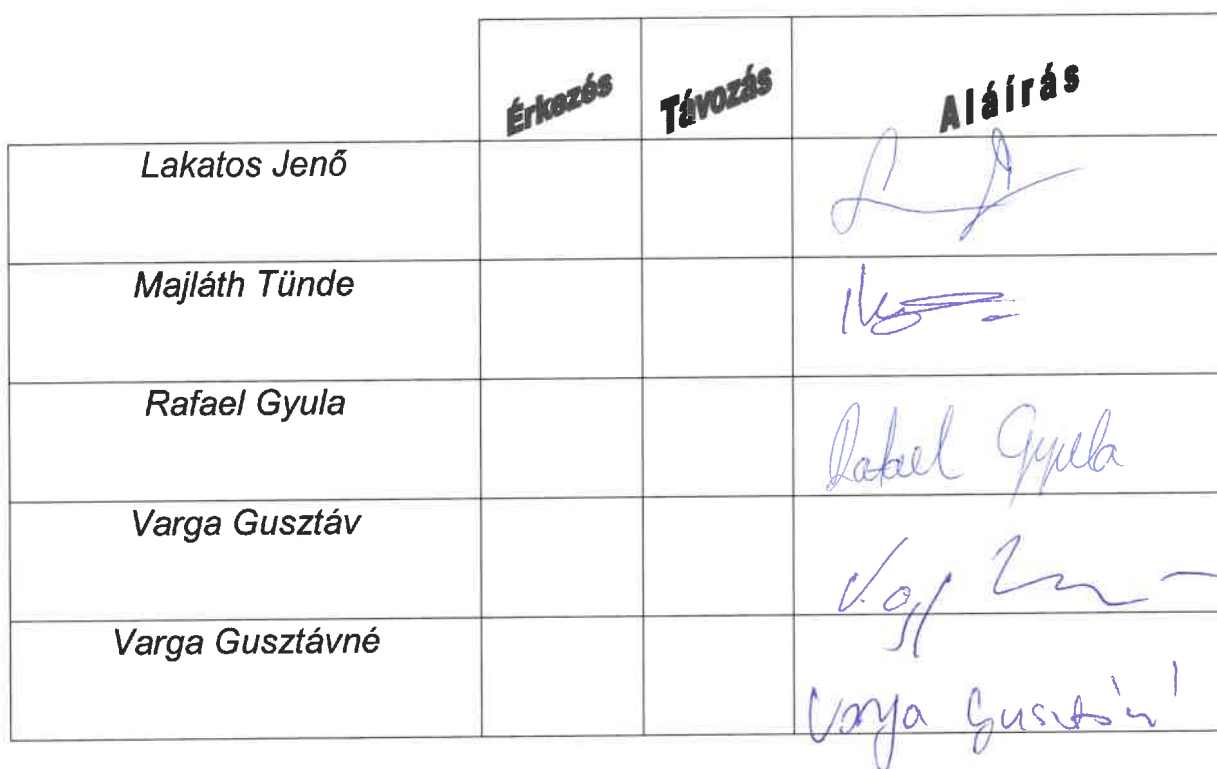 Érkezés Távozás Aláírás
Lakatos Jenő
Majláth Tünde
Rafael Gyula
Rafael Gyula
Varga Gusztáv
Varga Gusztávné